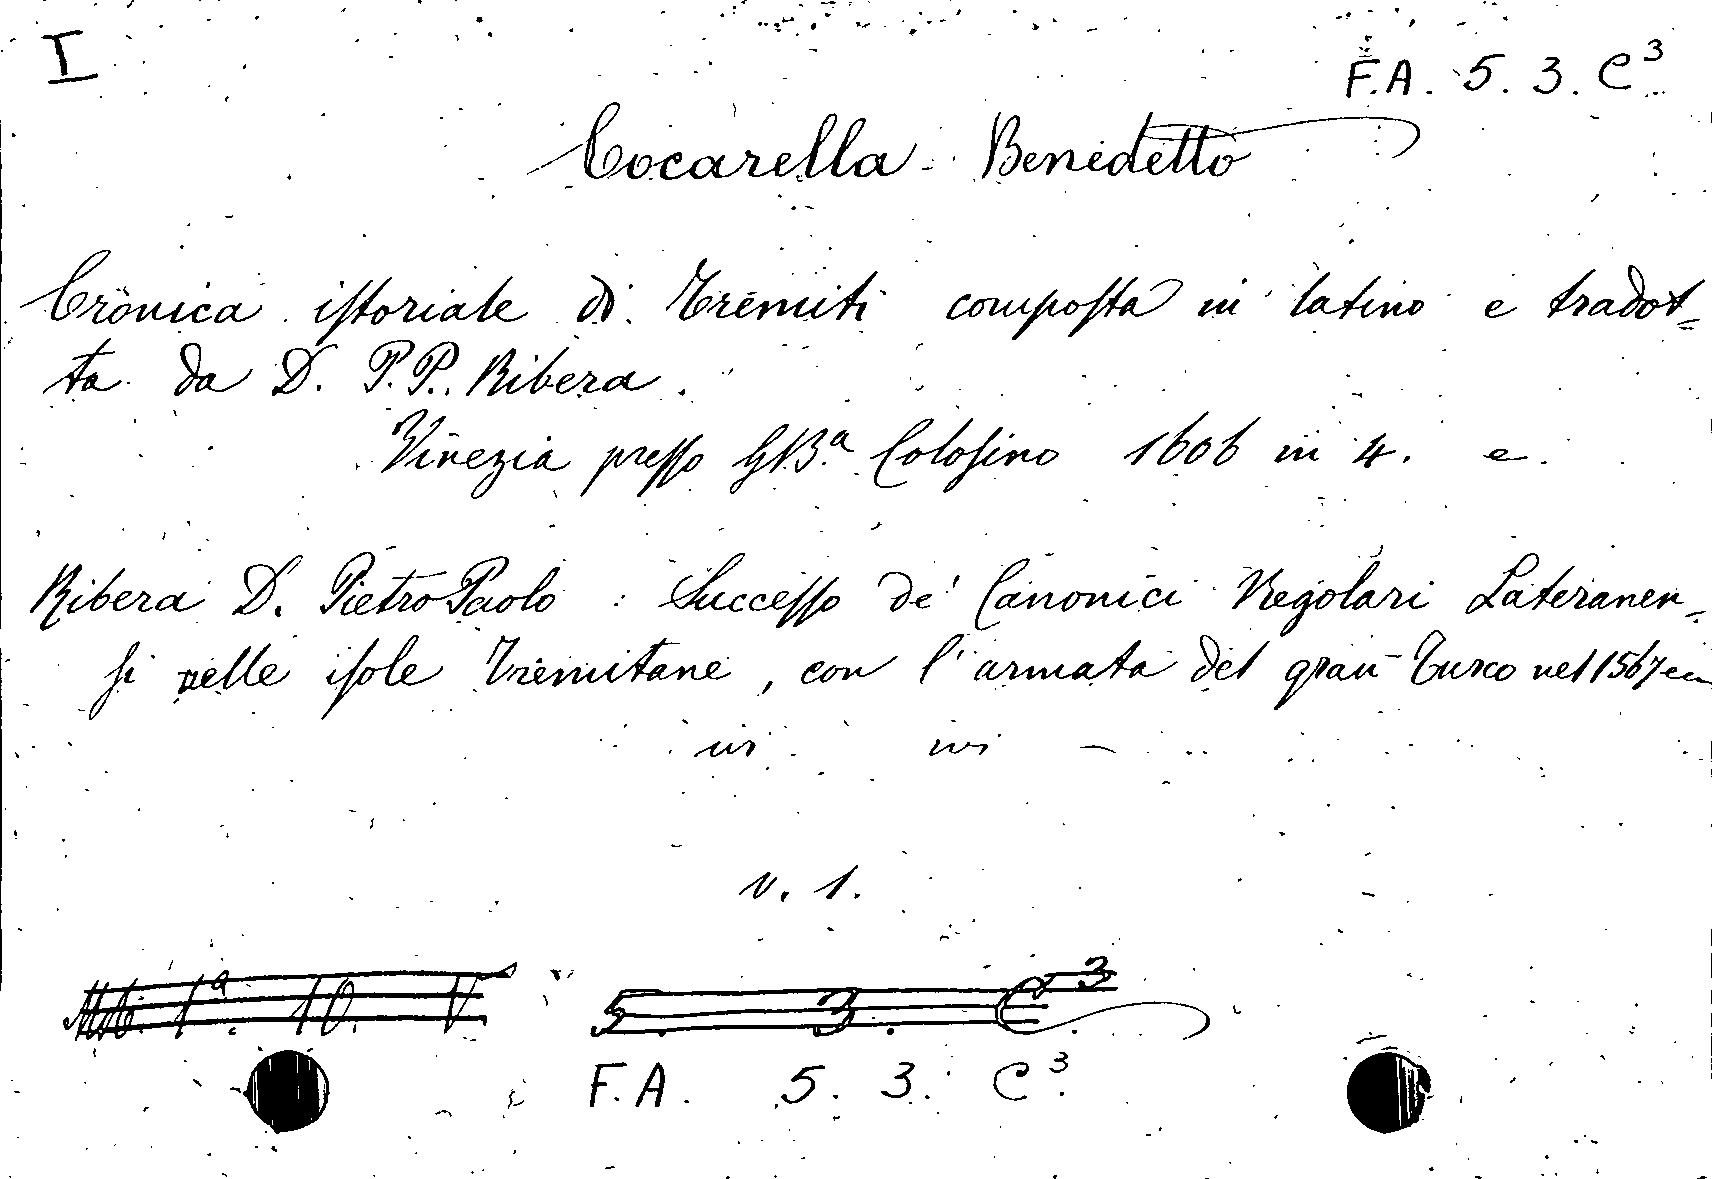 I
F.A. 5. 3. C³
Cocarella Benedetto
Cronica istoriale di Tremiti composta in latino e tradot=
ta da D. P.P. Ribera.
Vinezia presso GB.ª Colosino 1606 in 4. e
Ribera D. Pietro Paolo : Successo de' Canonici Regolari Lateranen=
si nelle isole Tremitane, con l'armata del gran Turco nel 1567
ivi ivi —
v. 1.
1ª. 10. V
5. 3. C³
F.A. 5. 3. C³